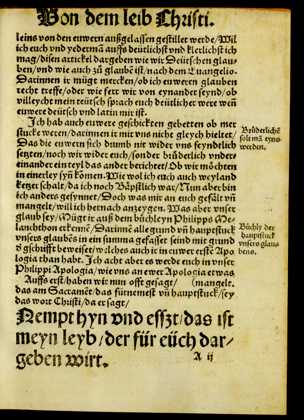 Von dem leib Christi.
leins von den euwern außgelassen gestillet werde/Wil
ich euch vnd yedermā auffs deütlichst vnd klerlichst ich
mag/disen artickel dargeben wie wir Deütschen glau
ben/vnd wie auch zů glaubē ist/nach dem Euangelio.
Darinnen ir mügt mercken/ob ich euweren glauben
recht treffe/oder wie ferr wir von eynander seynd/ob
villeycht mein teütsch sprach euch deütlicher were weñ
euwere deütsch vnd latin mir ist.
Ich hab auch euwere geschickten gebetten ob mer
stucke weren/darinnen ir mit vns nicht gleych hieltet/
Das die euwern sich drumb nit wider vns feyndelich
setzten/noch wir wider euch/sonder brüderlich vnder
einander ein teyl das ander berichtet/Ob wir möchten
in einerley syñ komen. Wie wol ich euch auch weyland
ketzer schalt/da ich noch Bäpstlich war/Nun aber bin
ich anders gesynnet/Doch was mir an euch gefält vñ
mangelt/will ich hernach anzeygen. Was aber vnser
glaub sey/Mügt ir auß dem büchleyn Philipps Me-
lanchthon erkennē/Darinnē alle grund vñ hauptstuck
vnsers glaubēs in ein summa gefasset seind mit grund
d' schrifft beweiset/welches auch ir in euwer erste Apo
logia than habt. Ich acht aber es werde euch in vnser
Philippi Apologia/wie vns an ewer Apologia etwas
Auffs erst/haben wir nun offt gesagt/ (mangeln.
das am Sacramēt/das fürnemest vñ hauptstuck/sey
das wort Christi/da er sagt/
Nempt hyn vnd esszt/das ist
meyn leyb/der für eüch dar-
geben wirt.
A ij
Brüderlichs
solt mā eyns
werden.
Büchly der
hauptstuck
vnsers glau
bens.